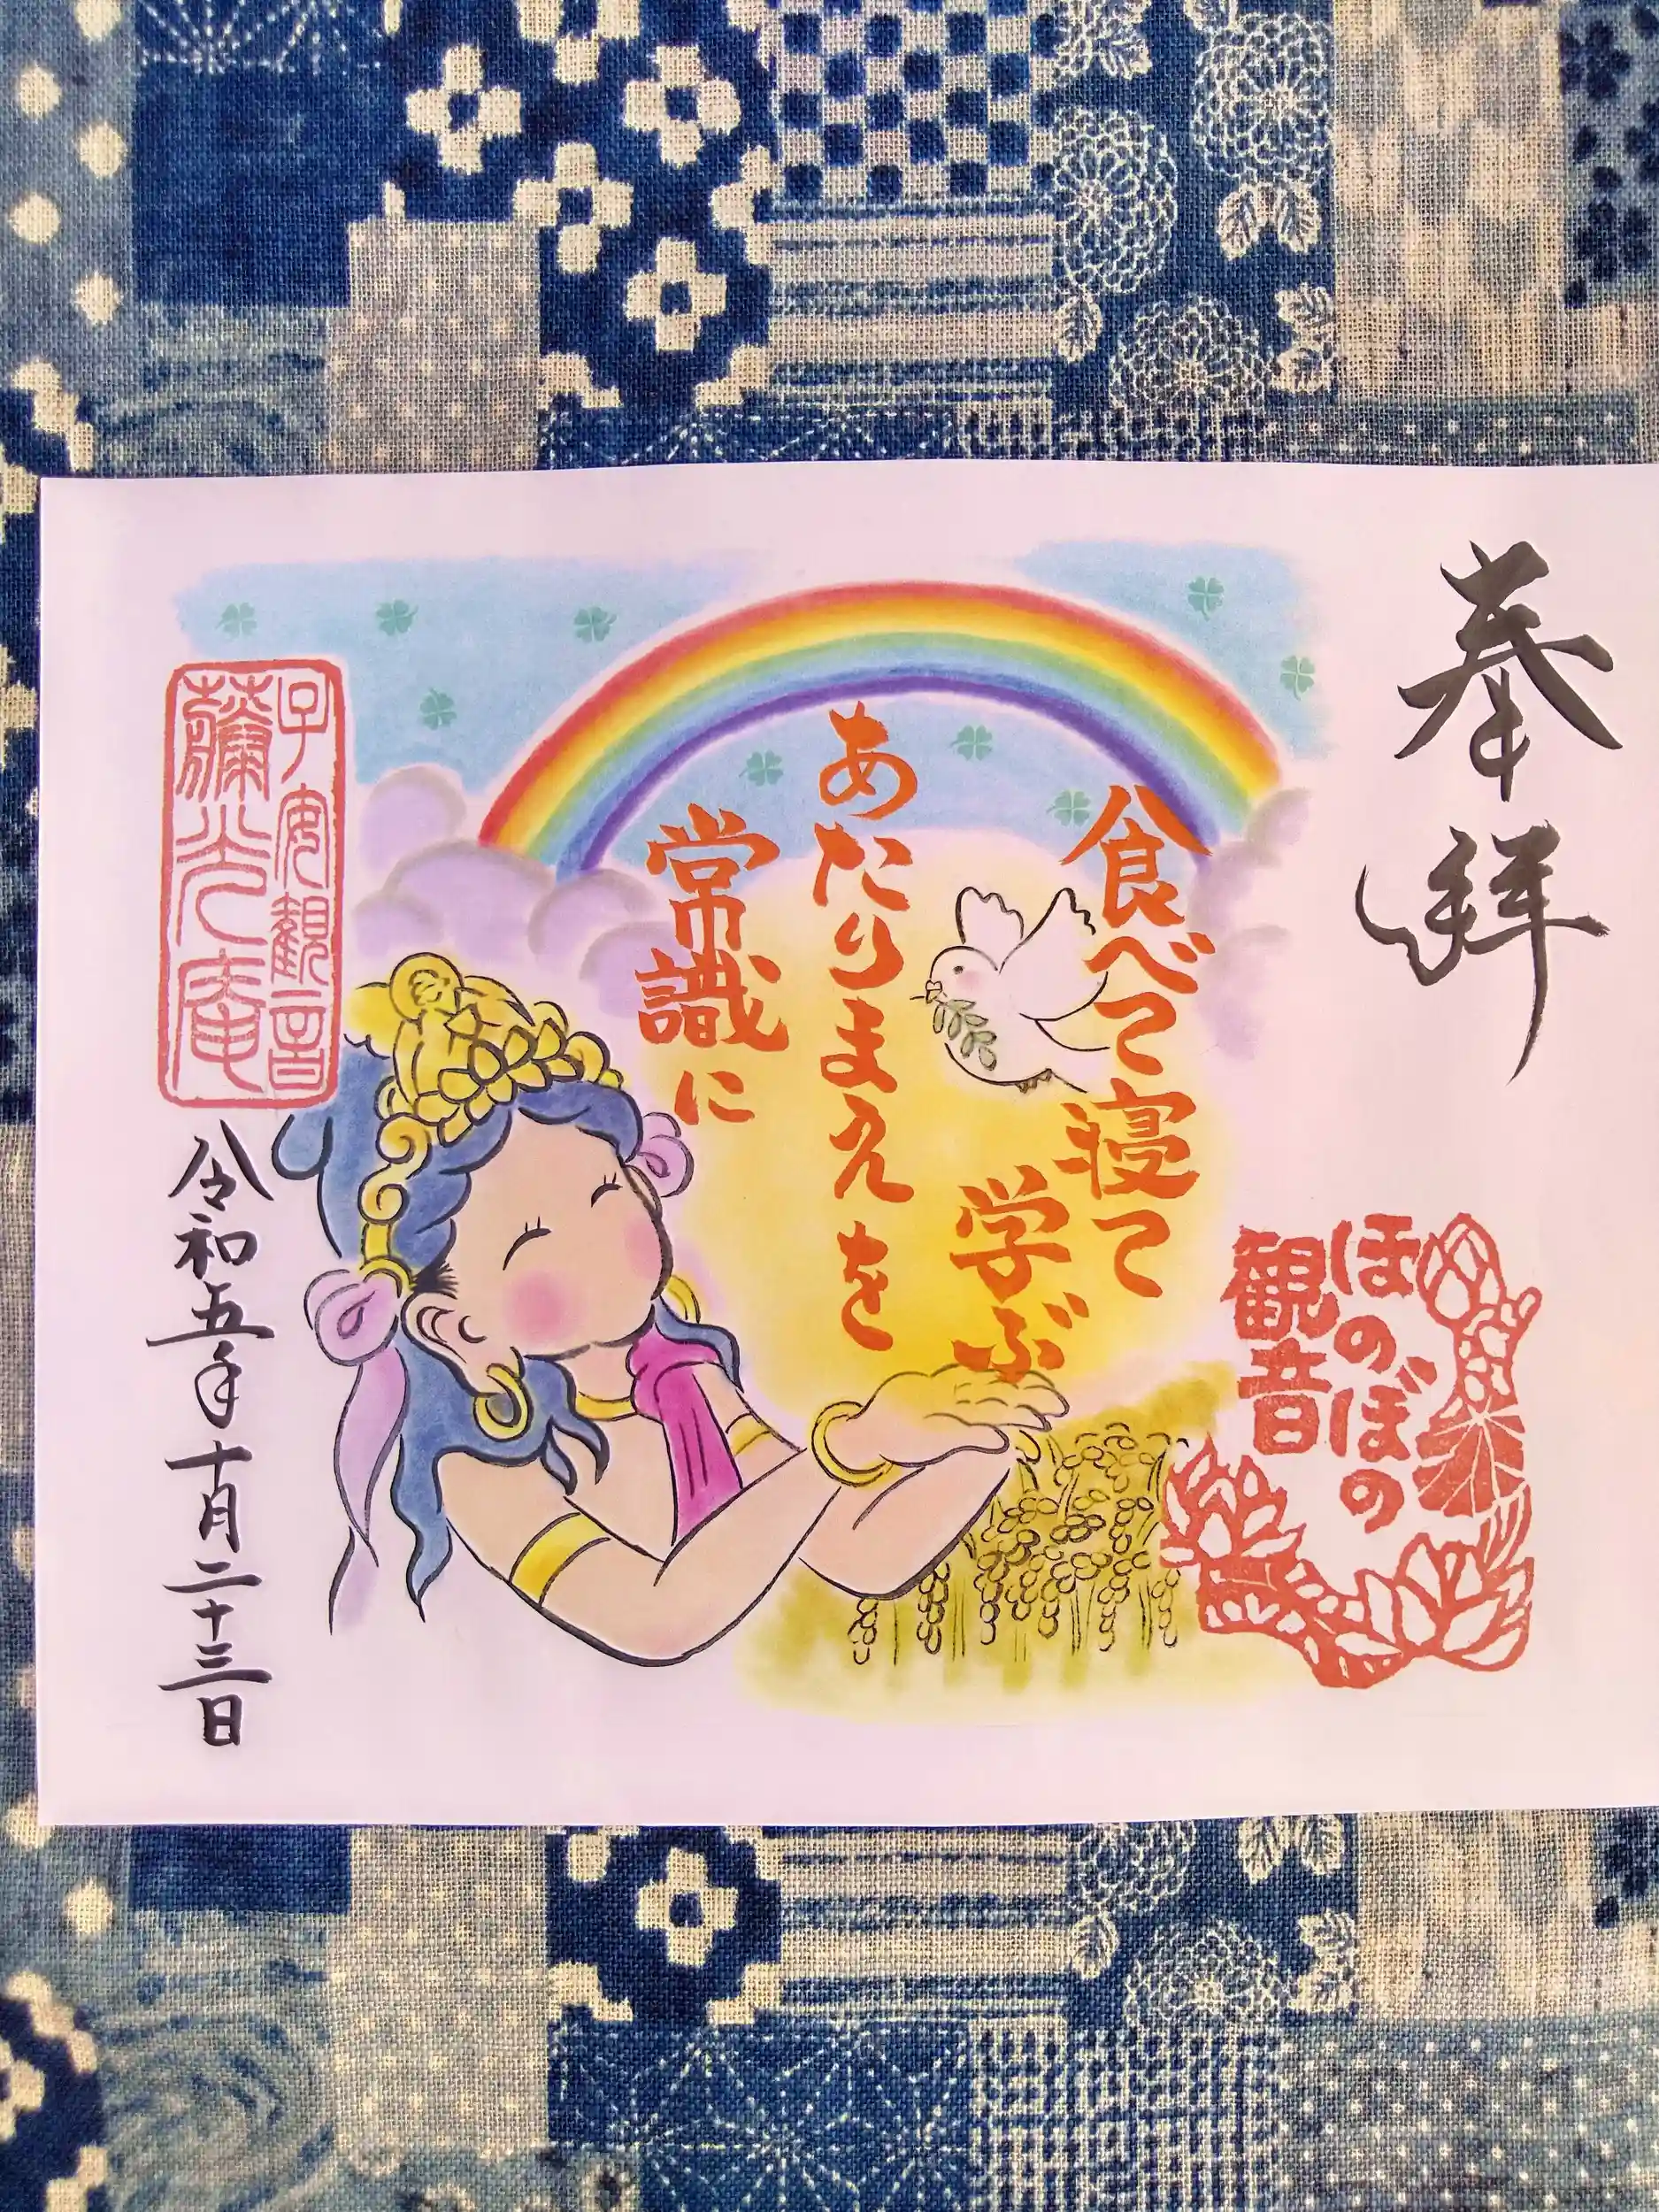 奉拝
ほのぼの
観音
食べて寝て
学ぶ
あたりまえを
常識に
子安観音
藥光庵
令和五年十月二十三日